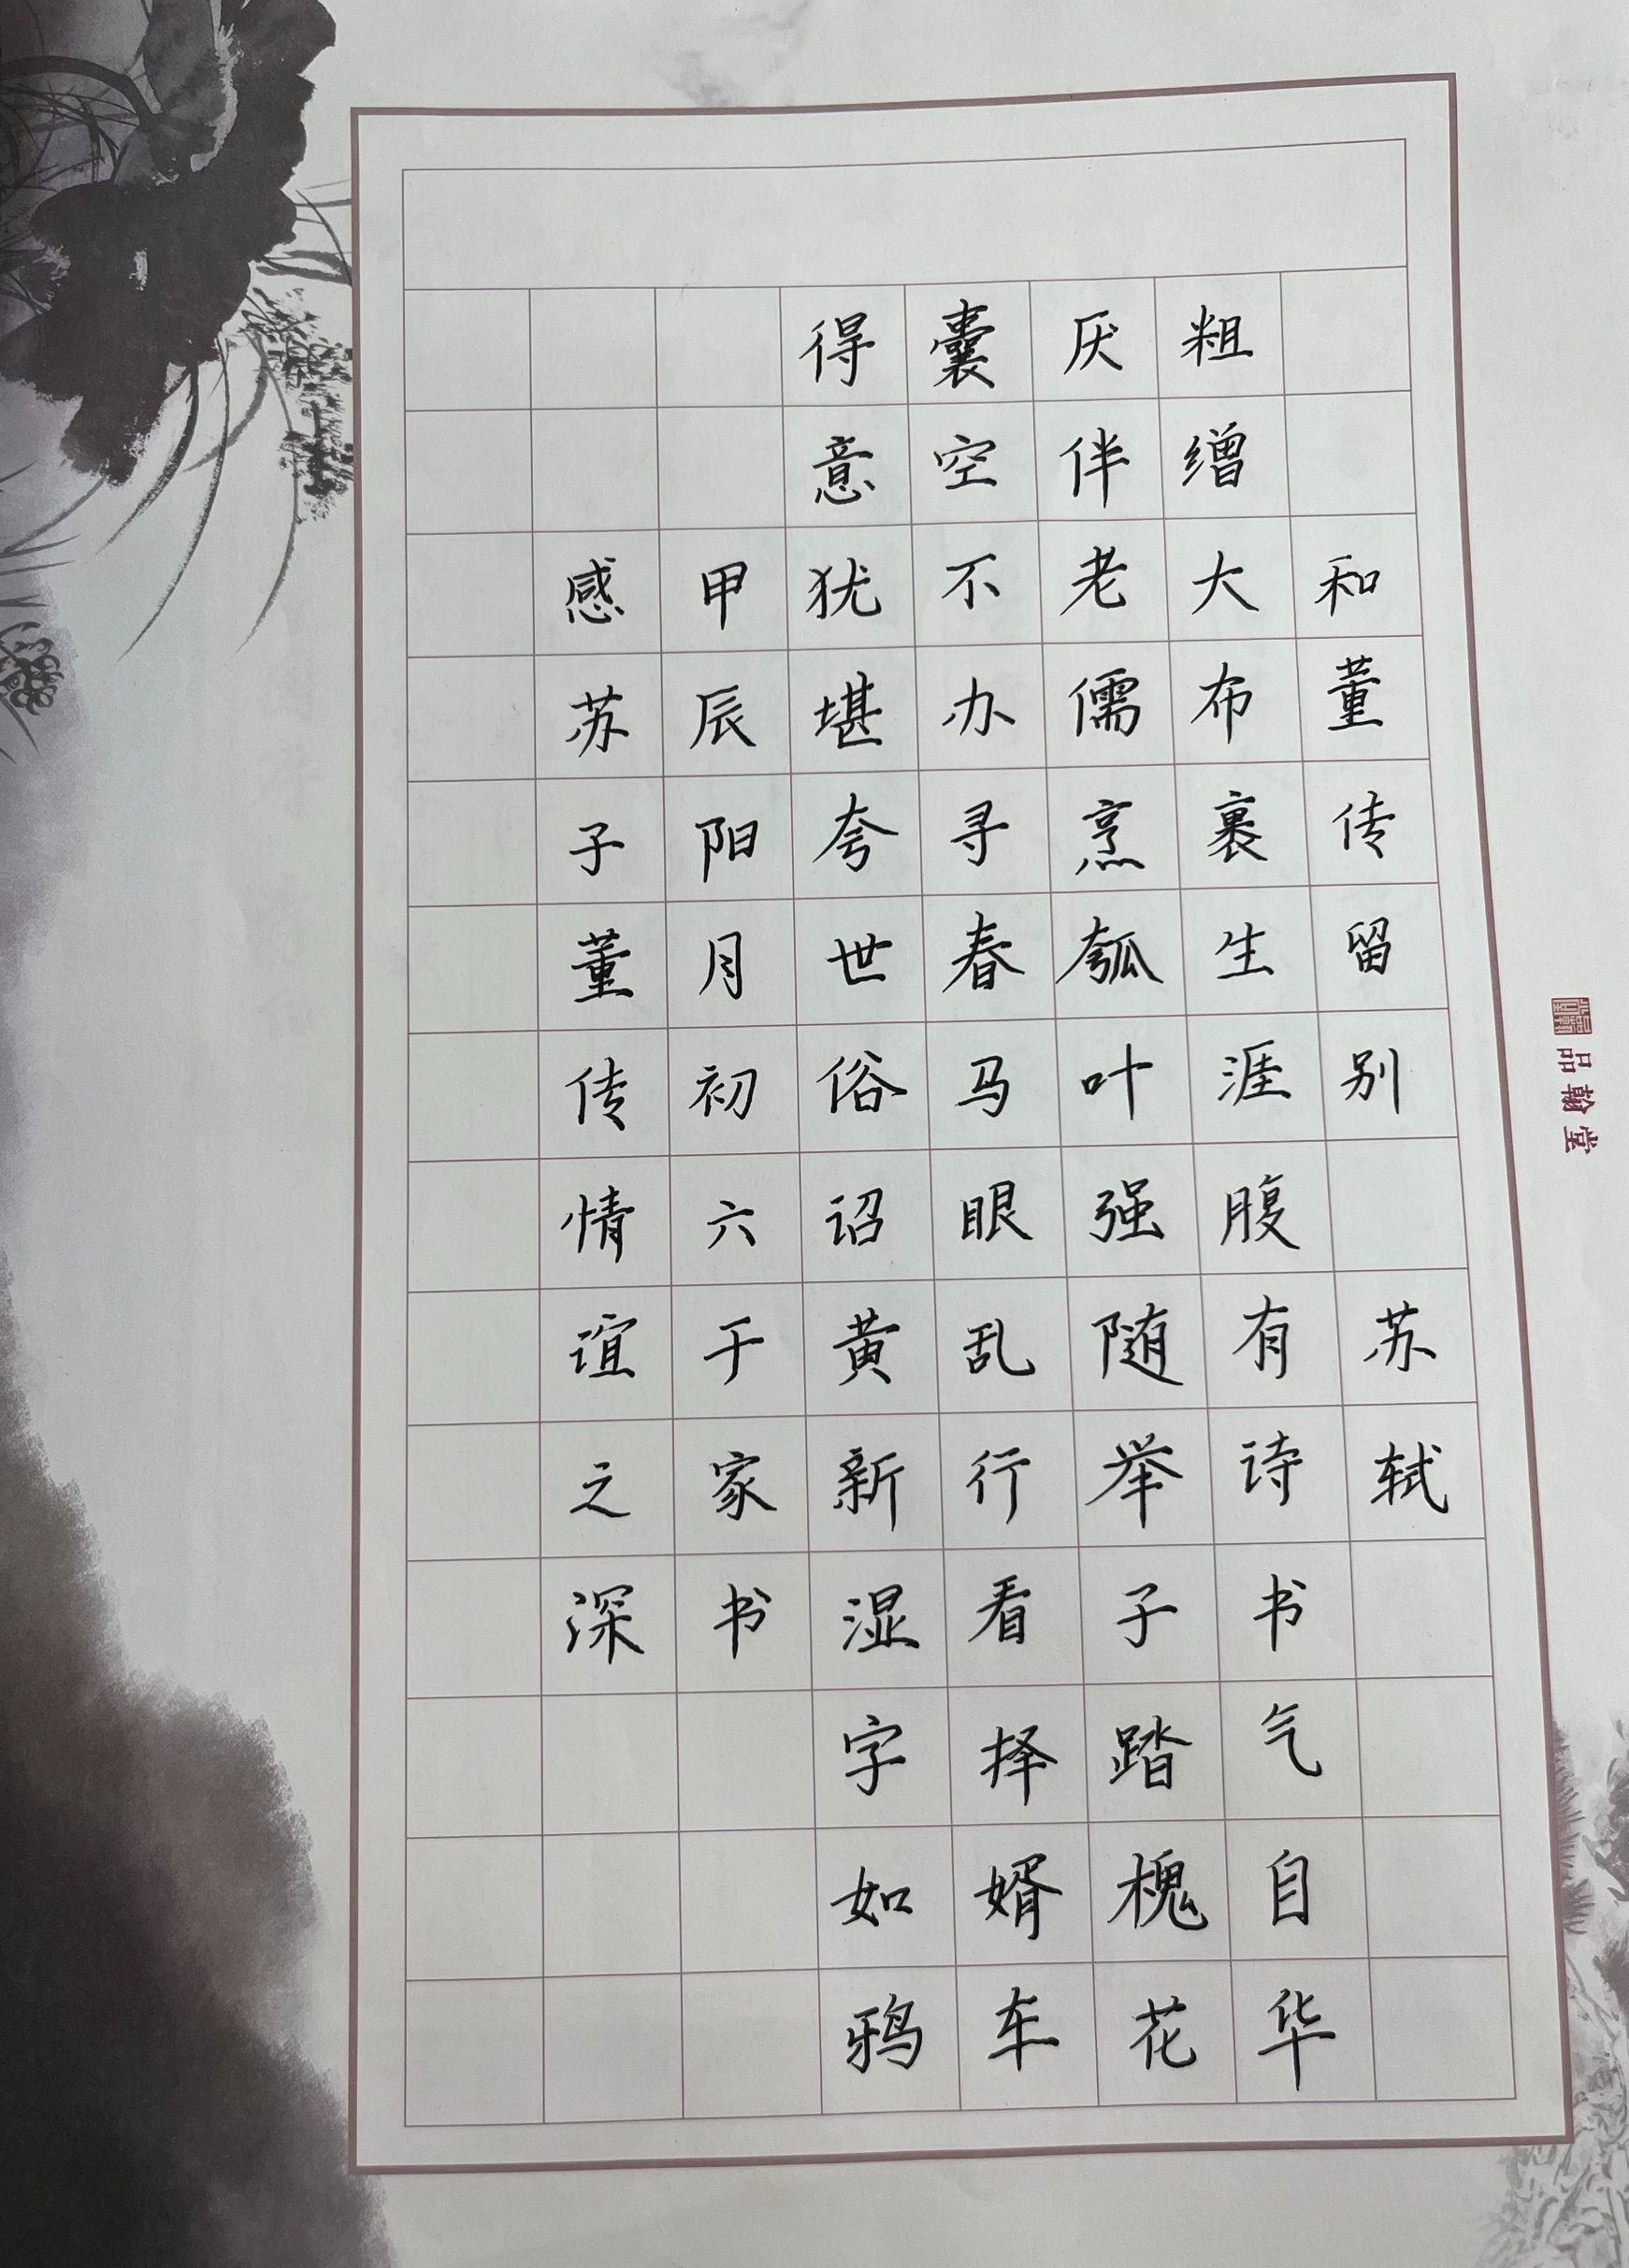 和董传留别 苏轼
粗缯大布裹生涯腹有诗书气自华
厌伴老儒烹瓠叶强随举子踏槐花
囊空不办寻春马眼乱行看择婿车
得意犹堪夸世俗诏黄新湿字如鸦
甲辰阳月初六于家书
感苏子董传情谊之深
品翰堂